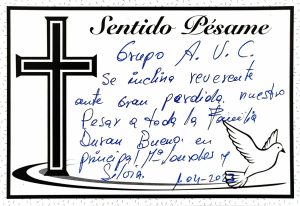 Sentido Pésame
Grupo A. V. C.
Se inclina reverente
ante Gran perdida, nuestro
Pesar a toda la Familia
Duran Bueno. en
principal Mª Lourdes y